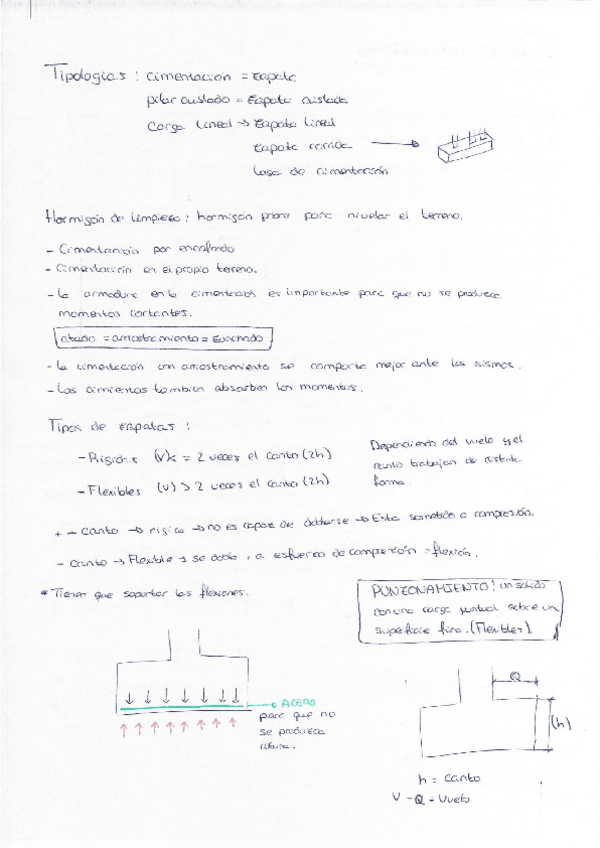 Tipologias : Cimentación = Zapata
pilar aislado = Zapata aislada
Carga lineal → Zapata Lineal
Zapata corrida
Losa de cimentación
Hormigón de limpieza : hormigón pobre para nivelar el terreno.
- Cimentación por encofrado
- Cimentación en el propio terreno.
- La armadura en la cimentación es importante para que no se produzca
momentos cortantes.
atado = arriostramiento = zunchado
- La cimentación con arriostramiento se comporta mejor ante los sismos.
- Los cimientos tambien absorben los momentos.
Tipos de zapatas :
- Rígidas (V) < = 2 veces el canto (2h)
- Flexibles (V) > 2 veces el canto (2h)
Dependiendo del vuelo y el
canto trabajan de distinta
forma.
+ - Canto → rígida → no es capaz de doblarse → Esta sometida a compresión.
- Canto → Flexible → se dobla, a esfuerzo de compresión = flexión.
* Tienen que soportar las flexiones.
PUNZONAMIENTO : un solido
con una carga puntual sobre un
superficie fina. (Flexibles).
ACERO
para que no
se produzca
rotura.
Q
(h)
h = canto
V - Q - Vuelo